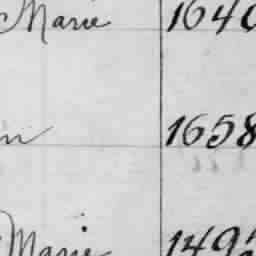 Marie 1640
n 1658
Marie 149